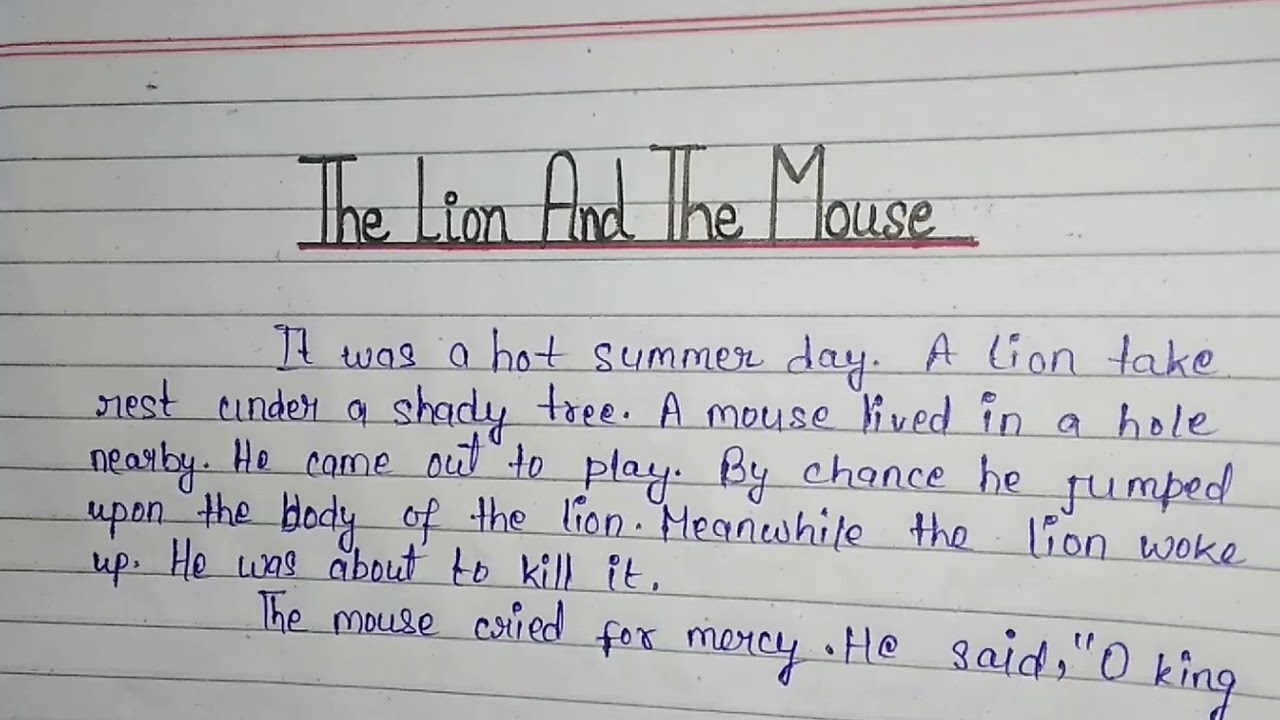 The Lion And The Mouse
It was a hot summer day. A lion take
rest under a shady tree. A mouse lived in a hole
nearby. He came out to play. By chance he jumped
upon the body of the lion. Meanwhile the lion woke
up. He was about to kill it.
The mouse cried for mercy. He said, "O king